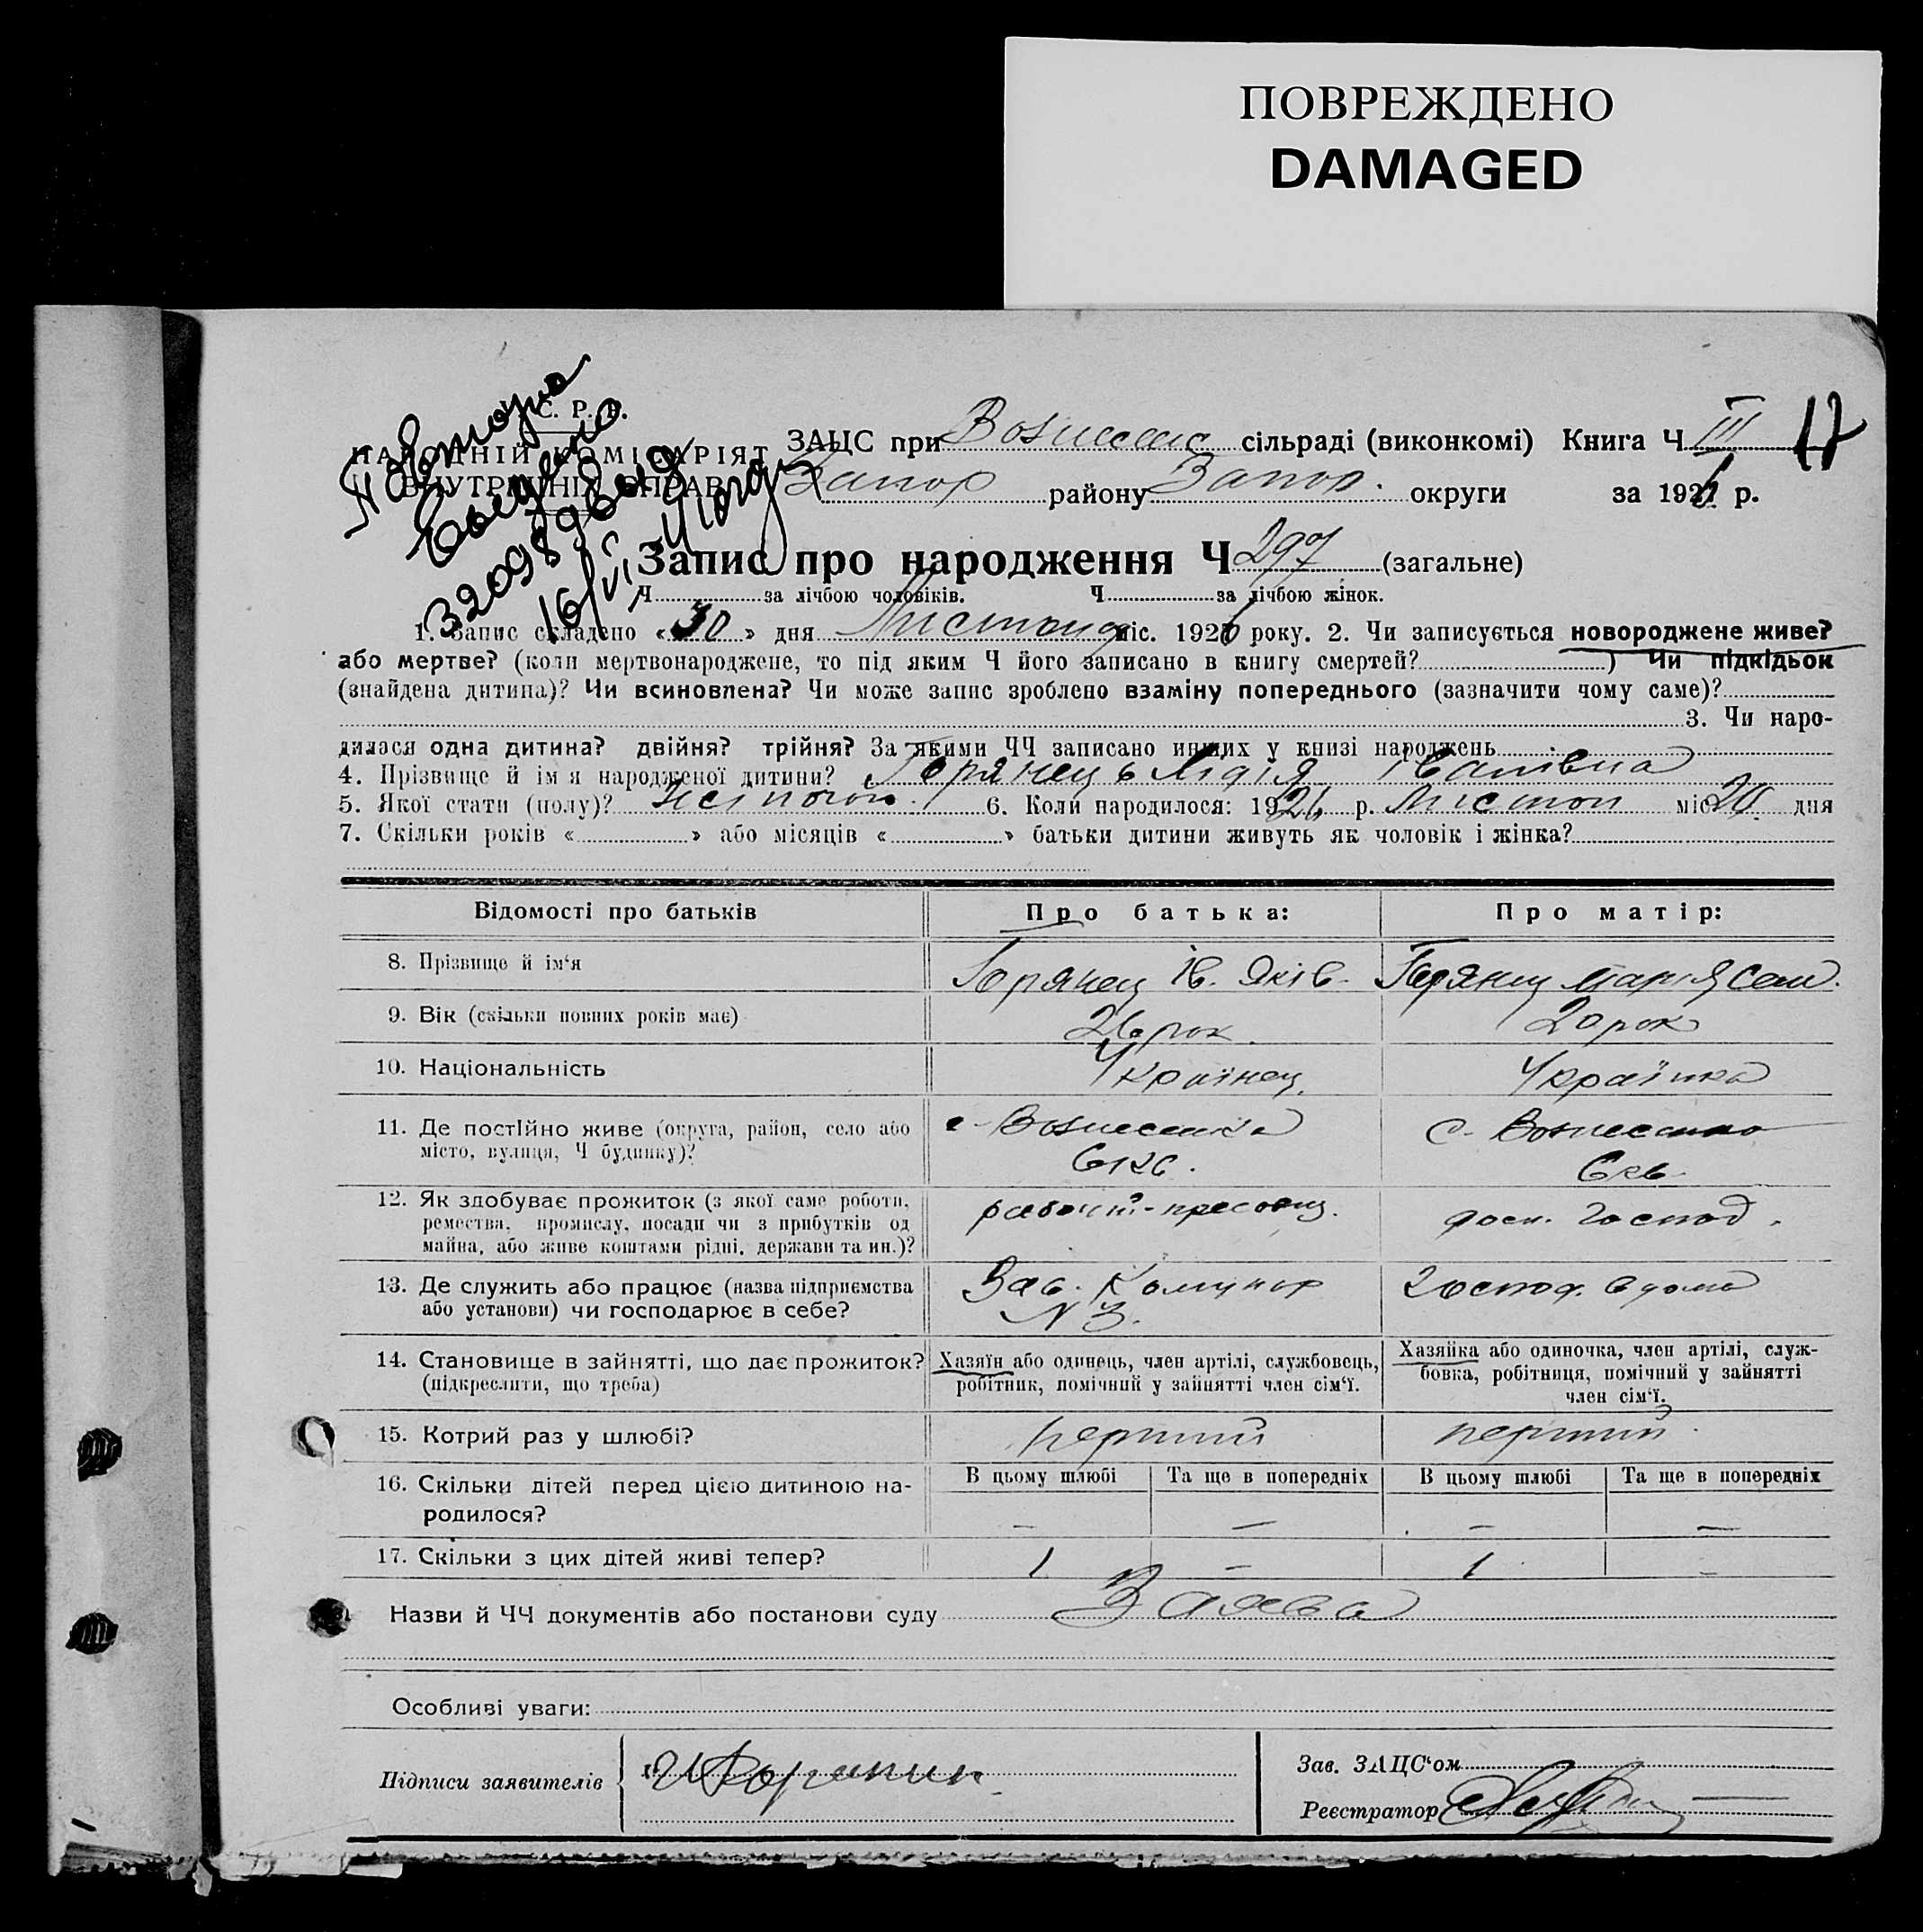 ПОВРЕЖДЕНО
DAMAGED
У. С. Р. Р.
НАРОДНІЙ КОМІСАРІЯТ
ВНУТРІШНІХ СПРАВ
Повторно
320989
16/VI
ЗАЦС при Вознесенс сільраді (виконкомі) Книга Ч III 17
Запор району Запор. округи за 1926 р.
Запис про народження Ч 297 (загальне)
Ч за лічбою чоловіків. Ч за лічбою жінок.
1. Запис складено «30» дня Листопад міс. 1926 року. 2. Чи записується новороджене живе?
або мертве? (коли мертвонароджене, то під яким Ч його записано в книгу смертей? ) Чи підкідьок
(знайдена дитина)? Чи всиновлена? Чи може запис зроблено взаміну попереднього (зазначити чому саме)?
3. Чи наро-
дилася одна дитина? двійня? трійня? За якими ЧЧ записано инших у книзі народжень
4. Прізвище й ім'я народженої дитини? Горянець Лідія Іванівна
5. Якої стати (полу)? Жіночой 6. Коли народилося: 1926 р. Листоп міс 20 дня
7. Скільки років « » або місяців « » батьки дитини живуть як чоловік і жінка?
Відомості про батьків Про батька: Про матір:
8. Прізвище й ім'я Горянец Ів. Яків. Горянец Марія Сем.
9. Вік (скільки повних років має) 26 рок. 20 рок
10. Національність Українец. Українка
11. Де постійно живе (округа, район, село або с. Вознесенка с. Вознесенка
місто, вулиця, Ч будинку)?
12. Як здобуває прожиток (з якої саме роботи, рабочий-пресовщ. дом. господ.
ремества, промислу, посади чи з прибутків од
майна, або живе коштами рідні, держави та ин.)?
13. Де служить або працює (назва підприємства Зав. Комунар господ. вдома
або установи) чи господарює в себе? N 3.
14. Становище в зайнятті, що дає прожиток? Хазяїн або одинець, член артілі, службовець, Хазяйка або одиночка, член артілі, служ-
(підкреслити, що треба) робітник, помічний у зайнятті член сім'ї. бовка, робітниця, помічний у зайнятті
член сім'ї.
15. Котрий раз у шлюбі? перший перший
16. Скільки дітей перед цією дитиною на- В цьому шлюбі Та ще в попередніх В цьому шлюбі Та ще в попередніх
родилося? — — — —
17. Скільки з цих дітей живі тепер? 1 — 1 —
Назви й ЧЧ документів або постанови суду Заява
Особливі уваги:
Підписи заявителів
Зав. ЗАЦС'ом
Реєстратор